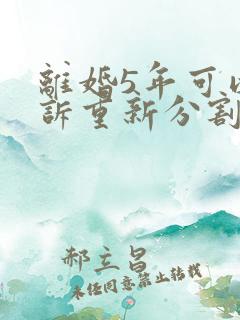 離婚5年可
訴重新分割
郝立昌
未经同意禁止转载